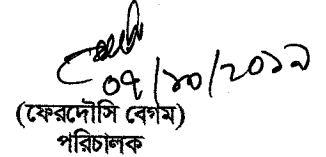 ০৭/১০/২০১৯
(ফেরদৌসি বেগম)
পরিচালক